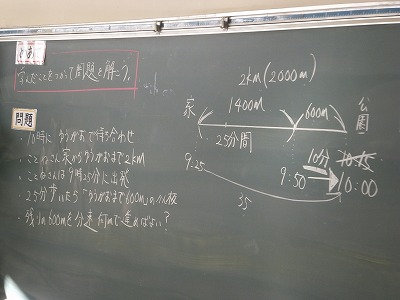 めあて
学んだことをつかって問題を解こう。
問題
・10時に ゆうがおで待ち合わせ
・ことねさん家からゆうがおまで2km
・ことねさんは9時25分に出発
・25分歩いたら「ゆうがおまで600m」のかん板
・残りの600mを分速何mで進めばよい?
2km(2000m)
家
1400m
600m
公園
25分間
9:25
9:50
10分
10:15
10:00
35